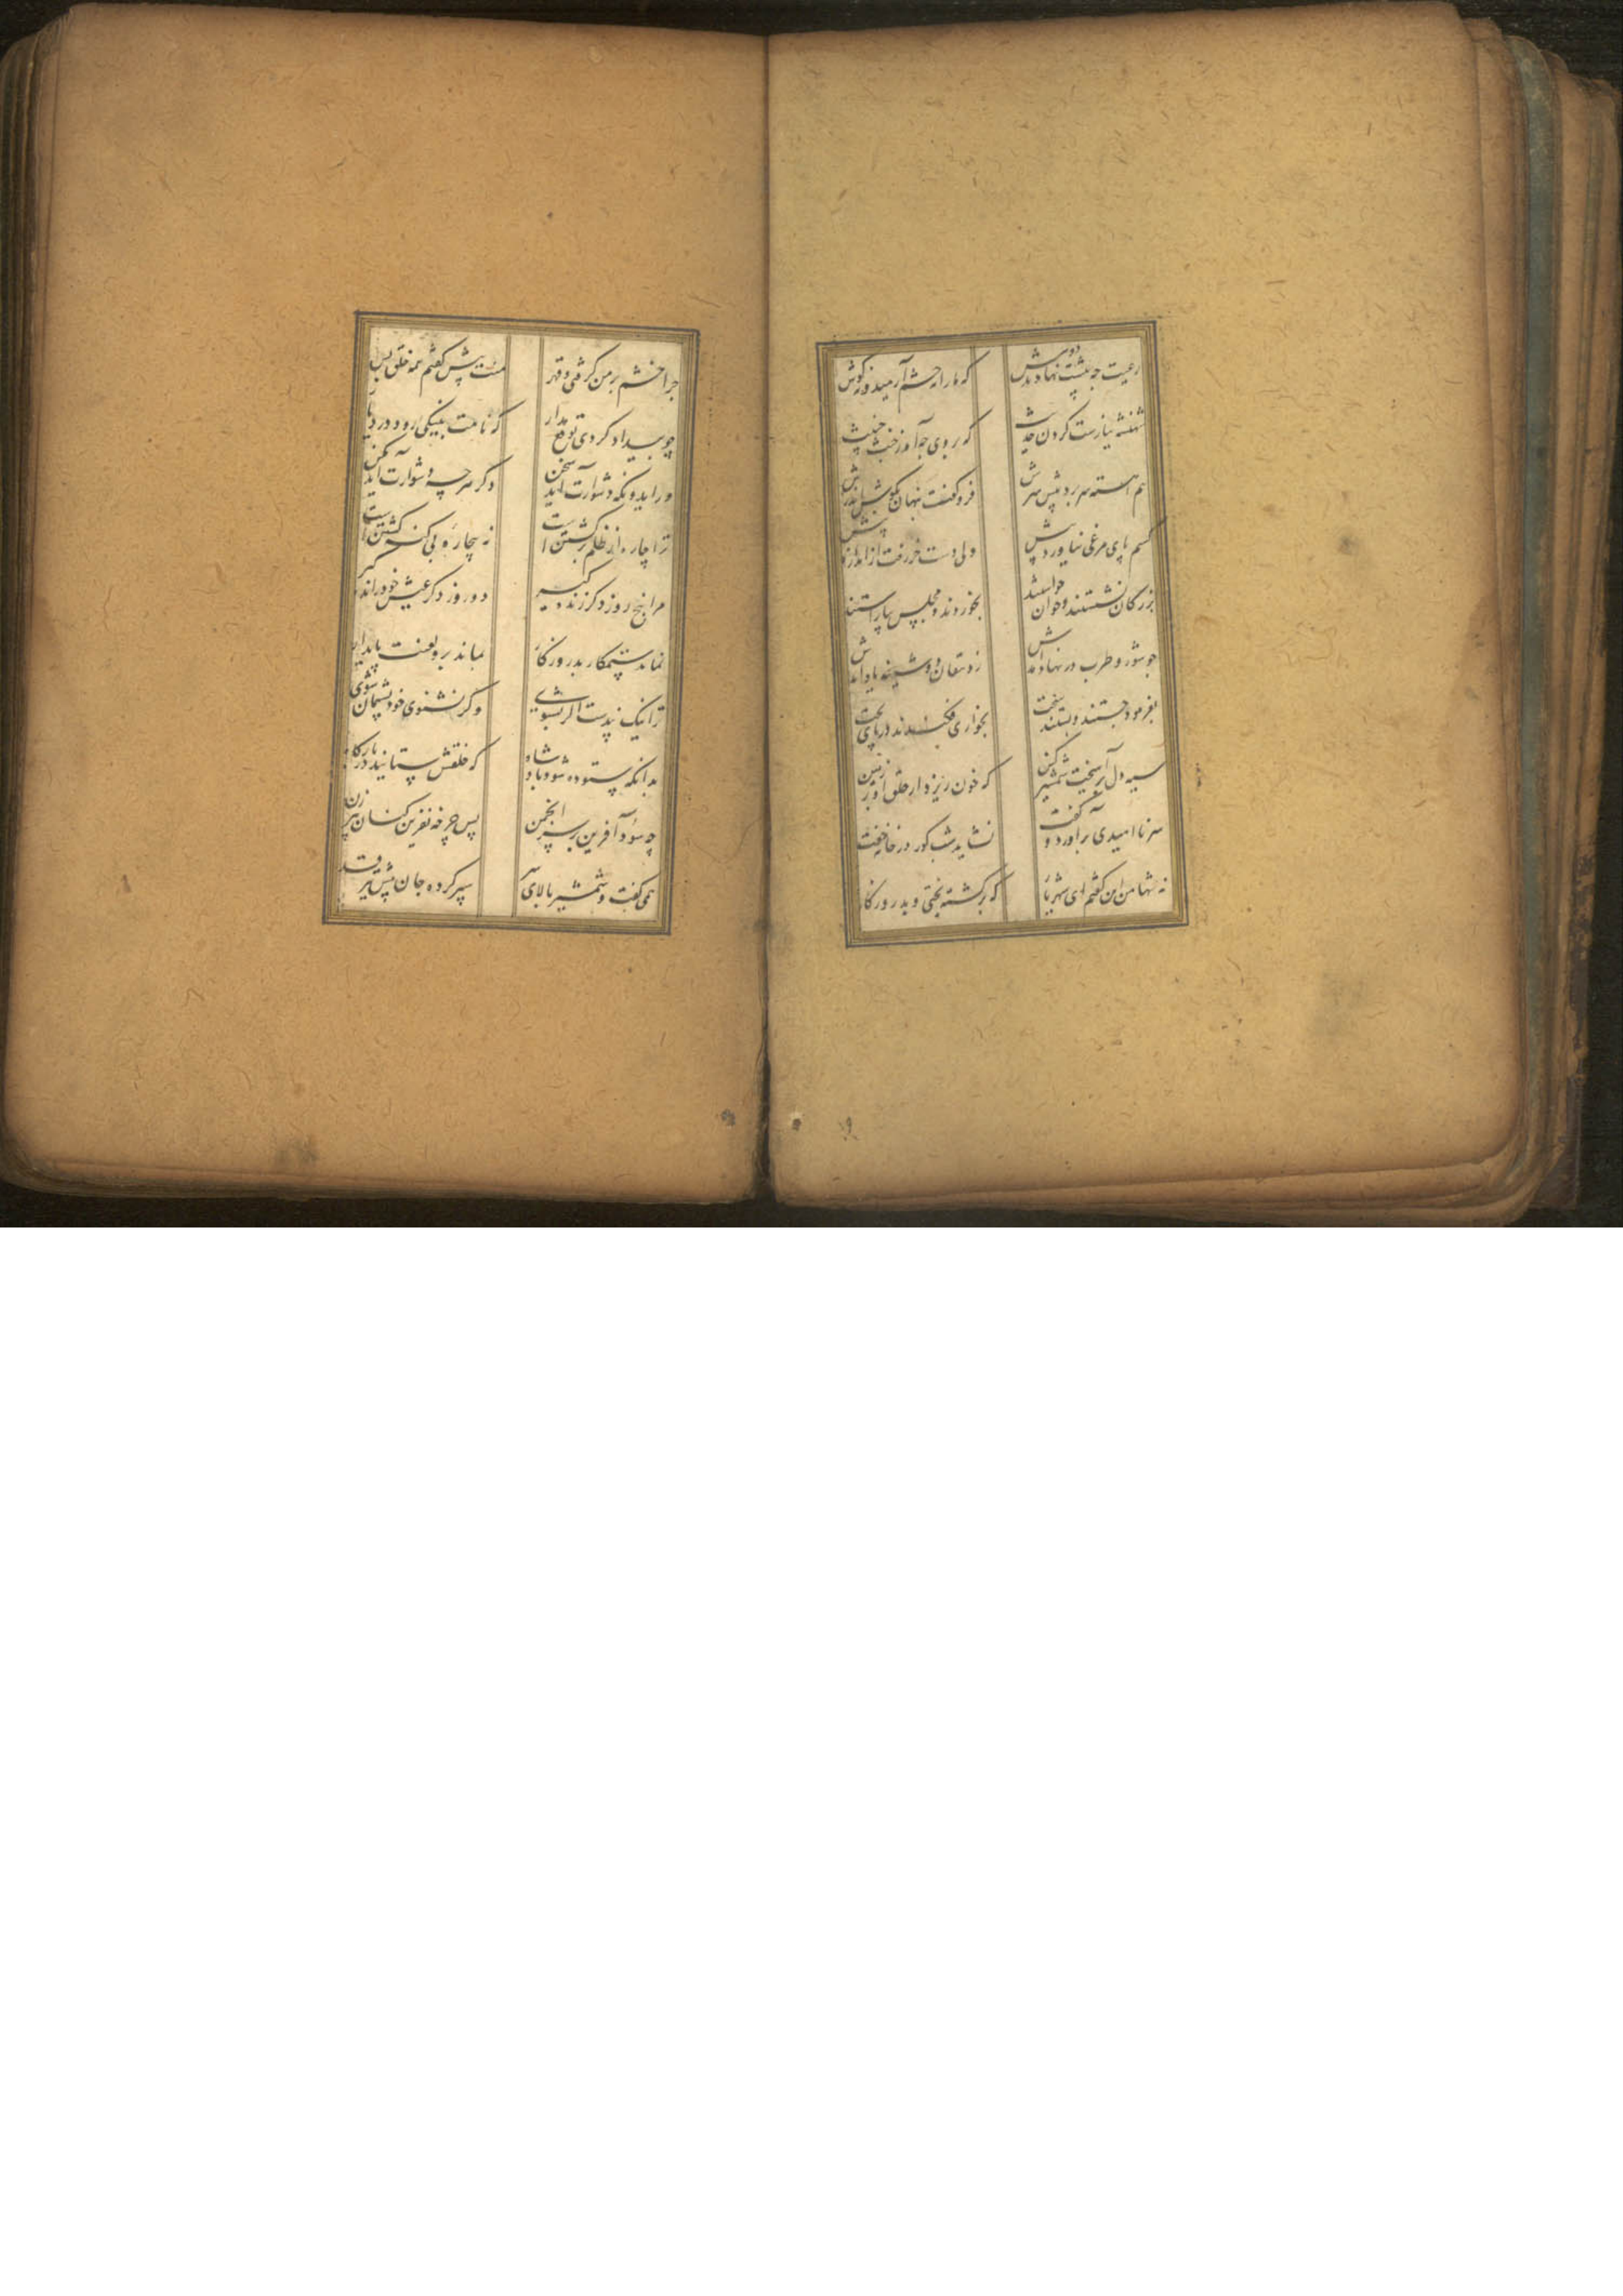 رعیت چه پشت نهادند دوش که ما را نه چشم آرمید و نه گوش
شهنشه نیارست کردن حدیث که بر وی چه آمد ز خبث خبیث
هم آهسته سر برد پیش سرش فرو گفت پنهان بگوش اندرش
کسم پای مرغی نیاورد پیش ولی دست خر رفت از اندازه بیش
بزرگان نشستند و خوان خواستند بخوردند و مجلس بیاراستند
چو شور و طرب در نهاد آمدش ز دهقان دوشینه یاد آمدش
بفرمود جستند و بستند سخت بخواری فکندند در پای تخت
سیه دل برآهیخت شمشیر کین که خون ریزد از حلق او بر زمین
سر ناامیدی برآورد و گفت نشاید شب گور در خانه خفت
نه تنها من این گفتم ای شهریار که برگشته بختی و بد روزگار
چرا خشم بر من گرفتی و قهر منت پیش گفتم همه خلق پس
چو بیداد کردی توقع مدار که نامت بنیکی رود در دیار
ور ایدونکه دشوارت آید سخن دگر هر چه دشوارت آید مکن
ترا چاره از ظلم برگشتن است نه بیچاره بی گنه کشتن است
مرا پنج روز دگر زنده گیر دو روز دگر عیش خود رانده گیر
نماند ستمکار بد روزگار بماند برو لعنت پایدار
ترا نیک پندست اگر بشنوی وگر نشنوی خود پشیمان شوی
بدانکه ستوده شود پادشاه که خلقش ستایند در بارگاه
چه سود آفرین بر سر انجمن پس چرخه نفرین کنان پیرزن
همی گفت و شمشیر بالای سر سپر کرده جان پیش تیر قدر